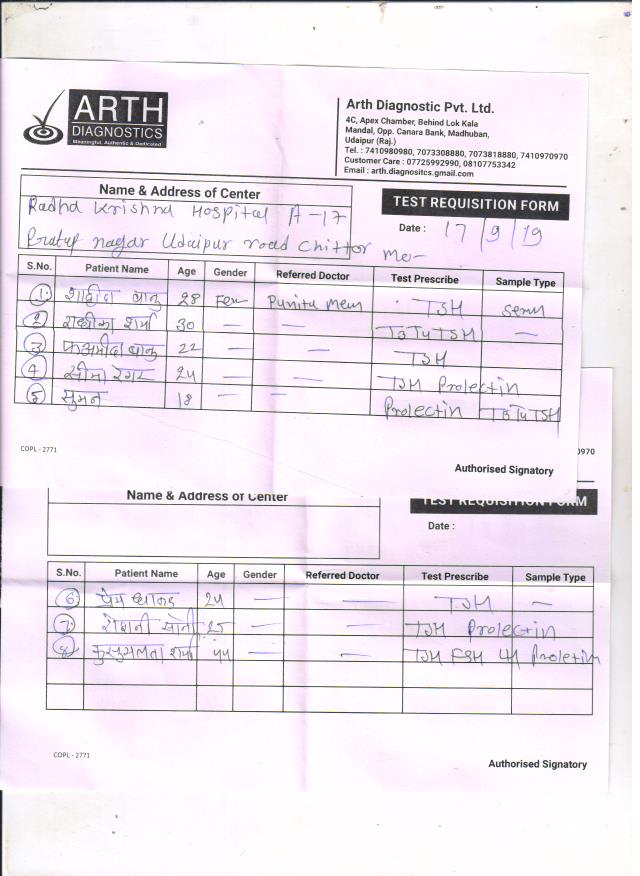 ARTH
DIAGNOSTICS
Meaningful, Authentic & Dedicated
Arth Diagnostic Pvt. Ltd.
4C, Apex Chamber, Behind Lok Kala
Mandal, Opp. Canara Bank, Madhuban,
Udaipur (Raj.)
Tel. : 7410980980, 7073308880, 7073818880, 7410970970
Customer Care : 07725992990, 08107753342
Email : arth.diagnositcs.gmail.com
Name & Address of Center
TEST REQUISITION FORM
Radha Krishna Hospital A-17
Date : 17/9/19
Pratap nagar Udaipur road Chittor
S.No. Patient Name Age Gender Referred Doctor Test Prescribe Sample Type
1 बानु 28 Fem Punita Mem TSH Serum
2 शर्मा 30 — — T3T4TSH —
3 बानु 22 — — TSH
4 सीमा रेगर 24 — — TSH Prolectin
5 सुमन 18 — — Prolectin T3T4TSH
COPL - 2771
Authorised Signatory
0970
Name & Address of Center
TEST REQUISITION FORM
Date :
S.No. Patient Name Age Gender Referred Doctor Test Prescribe Sample Type
6 प्रेम 24 — — TSH —
7 रोशनी सोनी 25 — — TSH Prolectin
8 कुसुमलता शर्मा — — TSH FSH LH Prolectin
COPL - 2771
Authorised Signatory